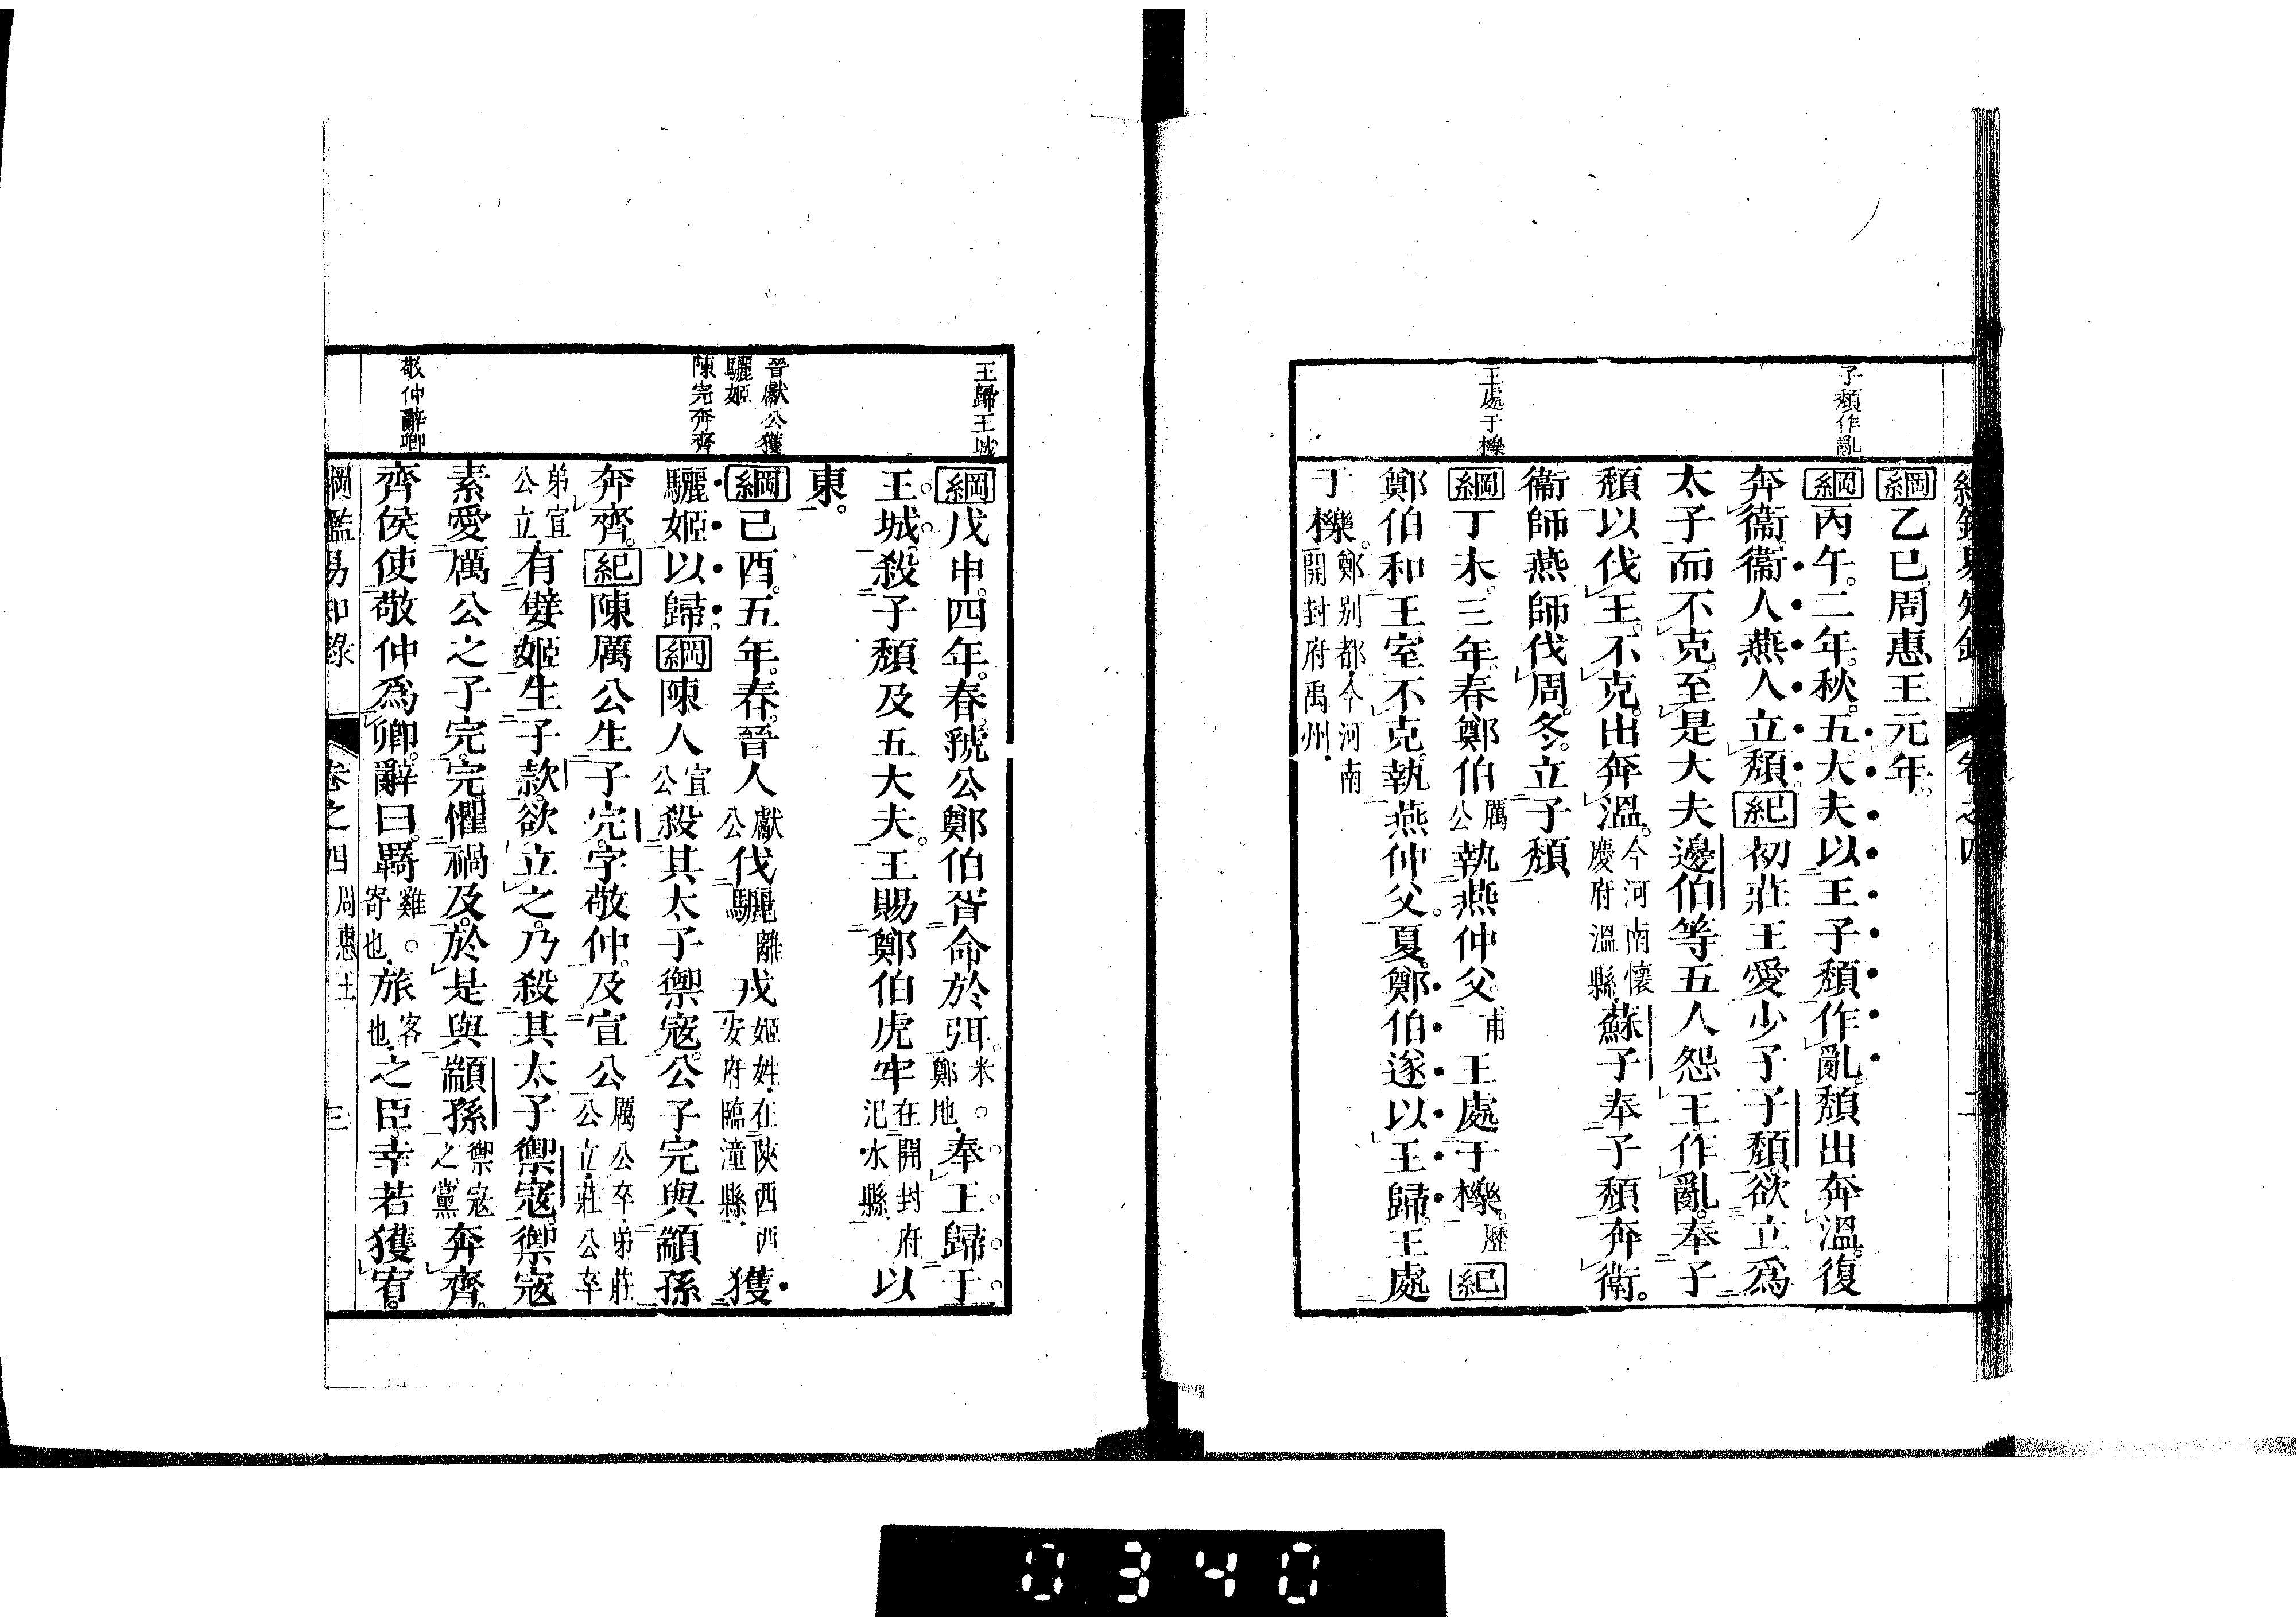 子頽作亂
王處于櫟
綱乙巳。周惠王元年。
綱丙午。二年。秋。五大夫以王子頽作亂。頽出奔溫。復
奔衞。衞人燕人立頽。紀初莊王愛少子子頽。欲立爲
太子而不克。至是大夫邊伯等五人怨王。作亂。奉子
頽以伐王。不克。出奔溫。今河南懷慶府溫縣。蘇子奉子頽奔衛。
衞師燕師伐周。冬。立子頽
綱丁未。三年。春鄭伯厲公執燕仲父。甫王處于櫟。歷紀
鄭伯和王室不克。執燕仲父。夏。鄭伯遂以王歸。王處
于櫟。鄭別都。今河南開封府禹州。
王歸王城
晉獻公獲
驪姬
陳完奔齊
敬仲辭卿
綱戊申。四年。春。虢公鄭伯胥命於弭。米。鄭地。奉王歸于
王城。殺子頽及五大夫。王賜鄭伯虎牢在開封府汜水縣以
東。
綱己酉。五年。春。晉人獻公伐驪離戎姬姓。在陝西西安府臨潼縣。獲
驪姬以歸。綱陳人宣公殺其太子禦寇。公子完與顓孫
奔齊。紀陳厲公生子完。字敬仲。及宣公厲公卒。弟莊公立。莊公卒
弟宣公立。有嬖姬生子款。欲立之。乃殺其太子禦寇。禦寇
素愛厲公之子完。完懼禍及。於是與顓孫禦寇之黨奔齊。
齊侯使敬仲爲卿。辭曰。羇雞。寄也。旅客也。之臣。幸若獲宥。
綱鑑易知錄 卷之四 周惠王 三